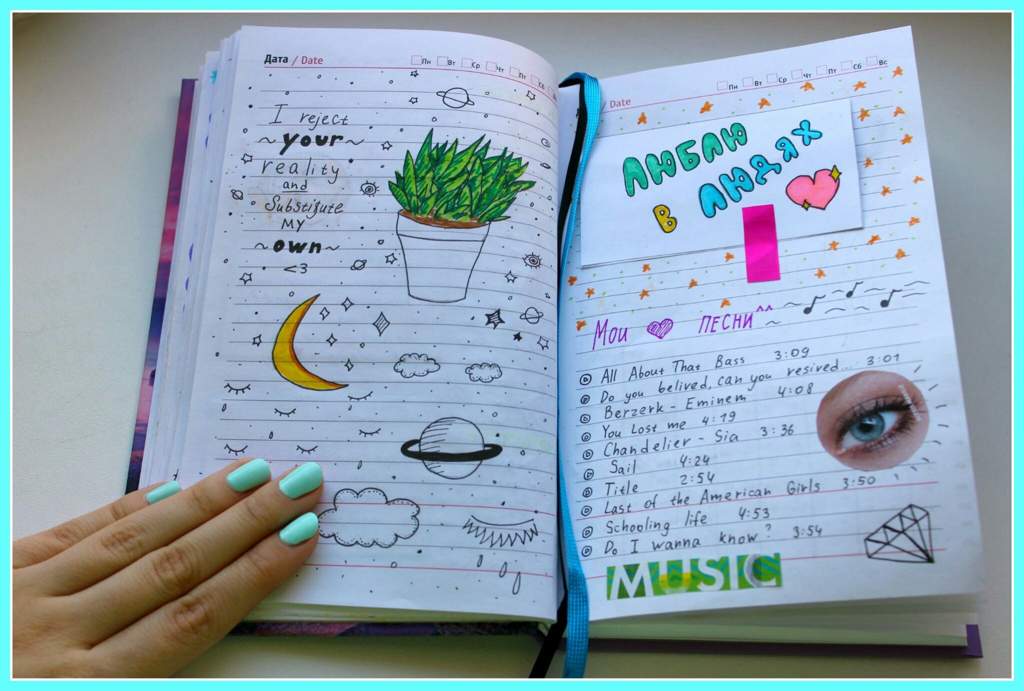 Дата / Date Пн Вт Ср Чт Пт Сб
I reject
~your~
reality
and
Substitute
MY
~own~
<3
Date Пн Вт Ср Чт Пт Сб Вс
ЛЮБЛЮ
В ЛЮДЯХ
Мои ПЕСНИ^^
All About That Bass 3:09
Do you belived, can you resived... 3:01
Berzerk - Eminem 4:08
You Lost me 4:19
Chandelier - Sia 3:36
Sail 4:24
Title 2:54
Last of the American Girls 3:50
Schooling life 4:53
Do I wanna know? 3:54
MUSIC